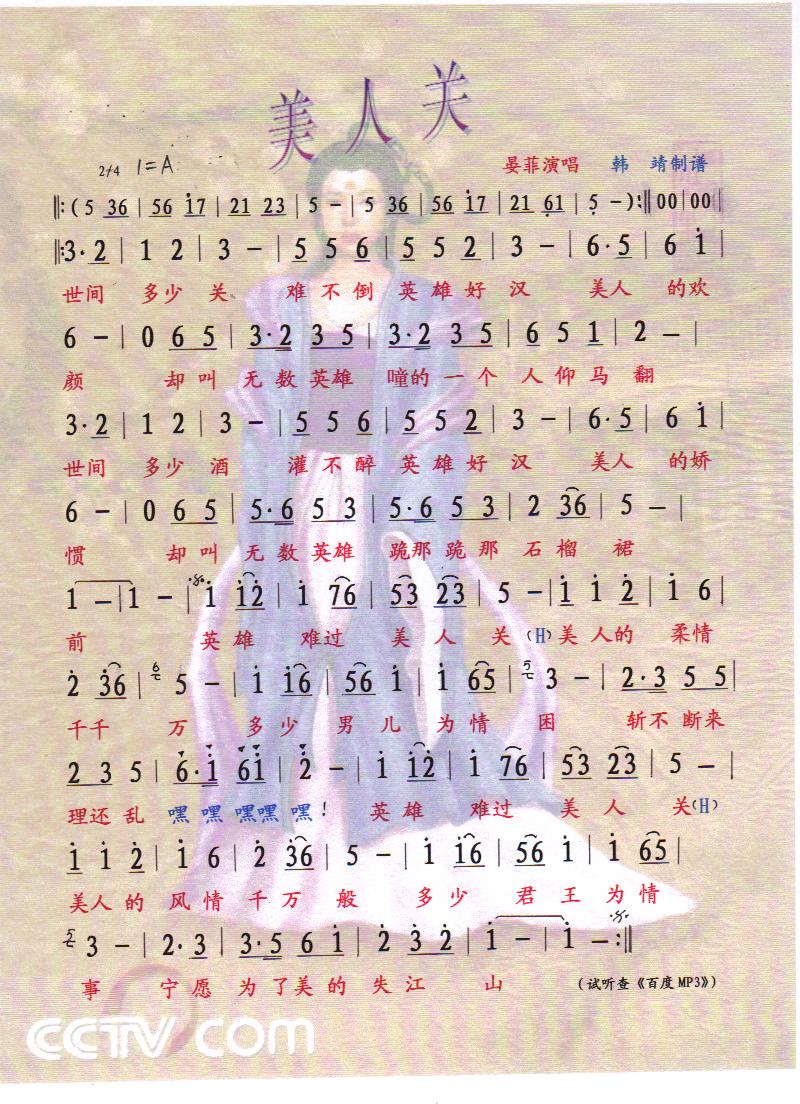 美人关
2/4 1=A 晏菲演唱 韩 靖制谱
‖:(5 36 | 56 i7 | 21 23 | 5 – | 5 36 | 56 i7 | 21 61 | 5 – ):‖ 00 | 00 |
‖:3·2 | 1 2 | 3 – | 5 5 6 | 5 5 2 | 3 – | 6·5 | 6 i |
世间 多少 关 难 不 倒 英 雄 好 汉 美人 的欢
6 – | 0 6 5 | 3·2 3 5 | 3·2 3 5 | 6 5 1 | 2 – |
颜 却叫 无 数 英雄 噇的 一 个 人 仰 马 翻
3·2 | 1 2 | 3 – | 5 5 6 | 5 5 2 | 3 – | 6·5 | 6 i |
世间 多少 酒 灌 不 醉 英 雄 好 汉 美人 的娇
6 – | 0 6 5 | 5·6 5 3 | 5·6 5 3 | 2 36 | 5 – |
惯 却叫 无 数 英雄 跪那 跪 那 石 榴 裙
1 – | 1 – | i i2 | i 76 | 53 23 | 5 – | i i 2 | i 6 |
前 英 雄 难过 美 人 关（H）美 人的 柔情
2 36 | 5 – | i i6 | 56 i | i 65 | 3 – | 2·3 5 5 |
千千 万 多 少 男 儿 为 情 困 斩不 断来
2 3 5 | 6·i 6i | 2 – | i i2 | i 76 | 53 23 | 5 – |
理还 乱 嘿 嘿 嘿嘿 嘿！ 英 雄 难过 美 人 关（H）
i i 2 | i 6 | 2 36 | 5 – | i i6 | 56 i | i 65 |
美人 的 风 情 千 万 般 多 少 君 王 为 情
3 – | 2·3 | 3·5 6 i | 2 3 2 | i – | i – :‖
事 宁 愿 为 了 美 的 失 江 山 （试听查《百度MP3》）
CCTV.com